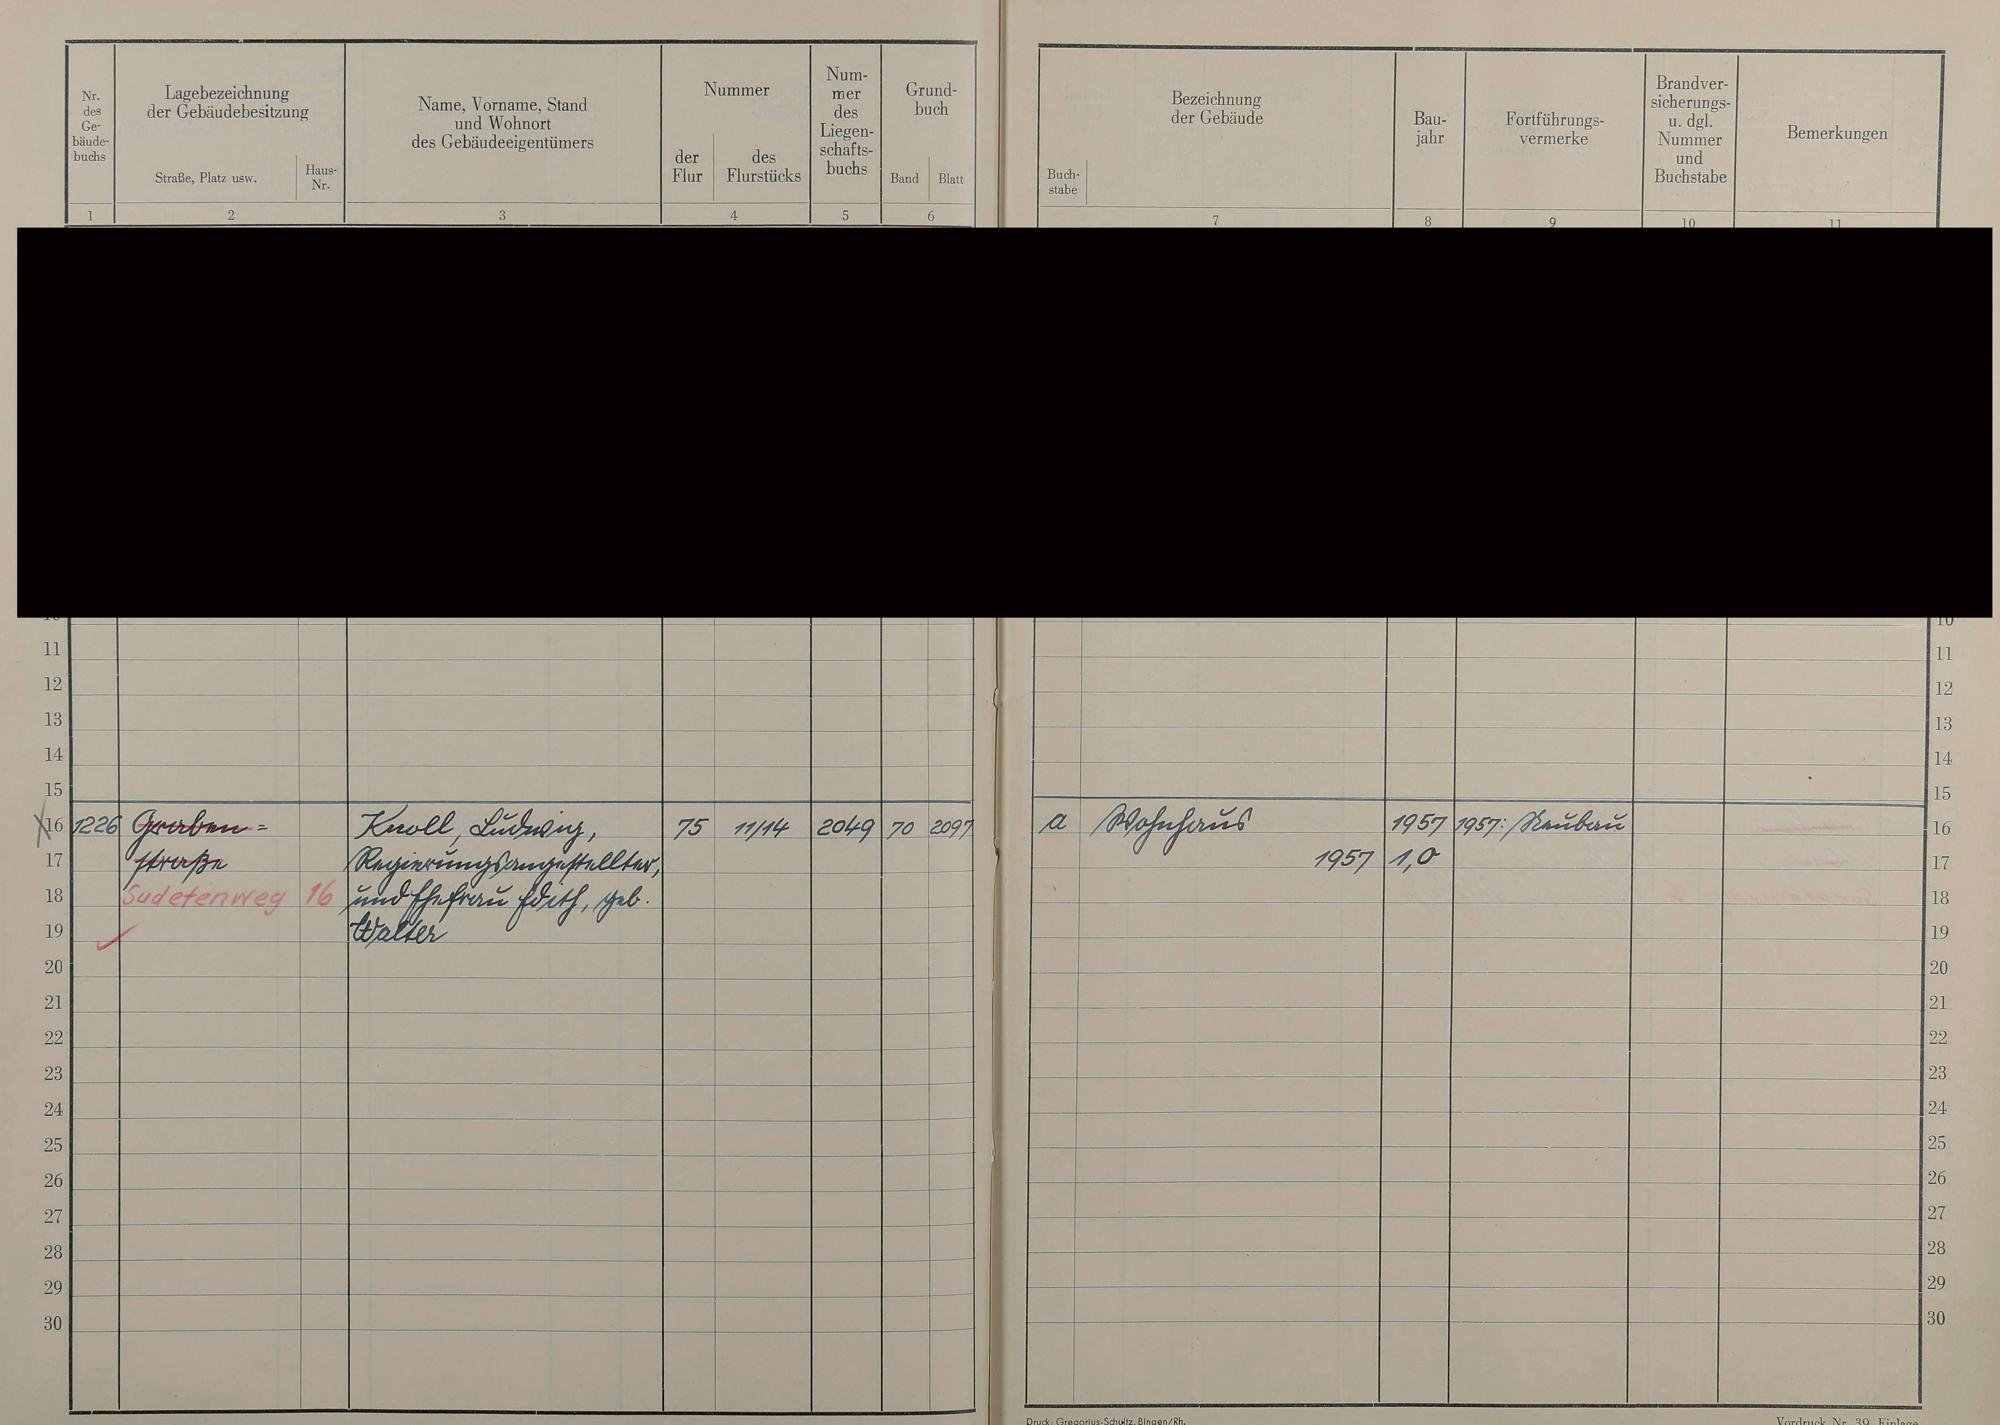 Nr. des Ge- bäude- buchs
Lagebezeichnung
der Gebäudebesitzung
Straße, Platz usw.
Haus- Nr.
Name, Vorname, Stand
und Wohnort
des Gebäudeeigentümers
Nummer
der Flur
des Flurstücks
Num- mer des Liegen- schafts- buchs
Grund- buch
Band
Blatt
1 2 3 4 5 6
Bezeichnung
der Gebäude
Buch- stabe
Bau- jahr
Fortführungs- vermerke
Brandver- sicherungs- u. dgl. Nummer und Buchstabe
Bemerkungen
7 8 9 10 11
10 10
11 11
12 12
13 13
14 14
15 15
16 1226 Graben= Knoll, Ludwig, 75 11/14 2049 70 2097 a Wohnhaus 1957 1957: Neubau 16
17 straße Regierungsangestellter, 1957 1,0 17
18 Sudetenweg 16 und Ehefrau Edith, geb. 18
19 Walter 19
20 20
21 21
22 22
23 23
24 24
25 25
26 26
27 27
28 28
29 29
30 30
Druck: Gregorius-Schultz, Bingen/Rh.
Vordruck Nr. 39 Einlage